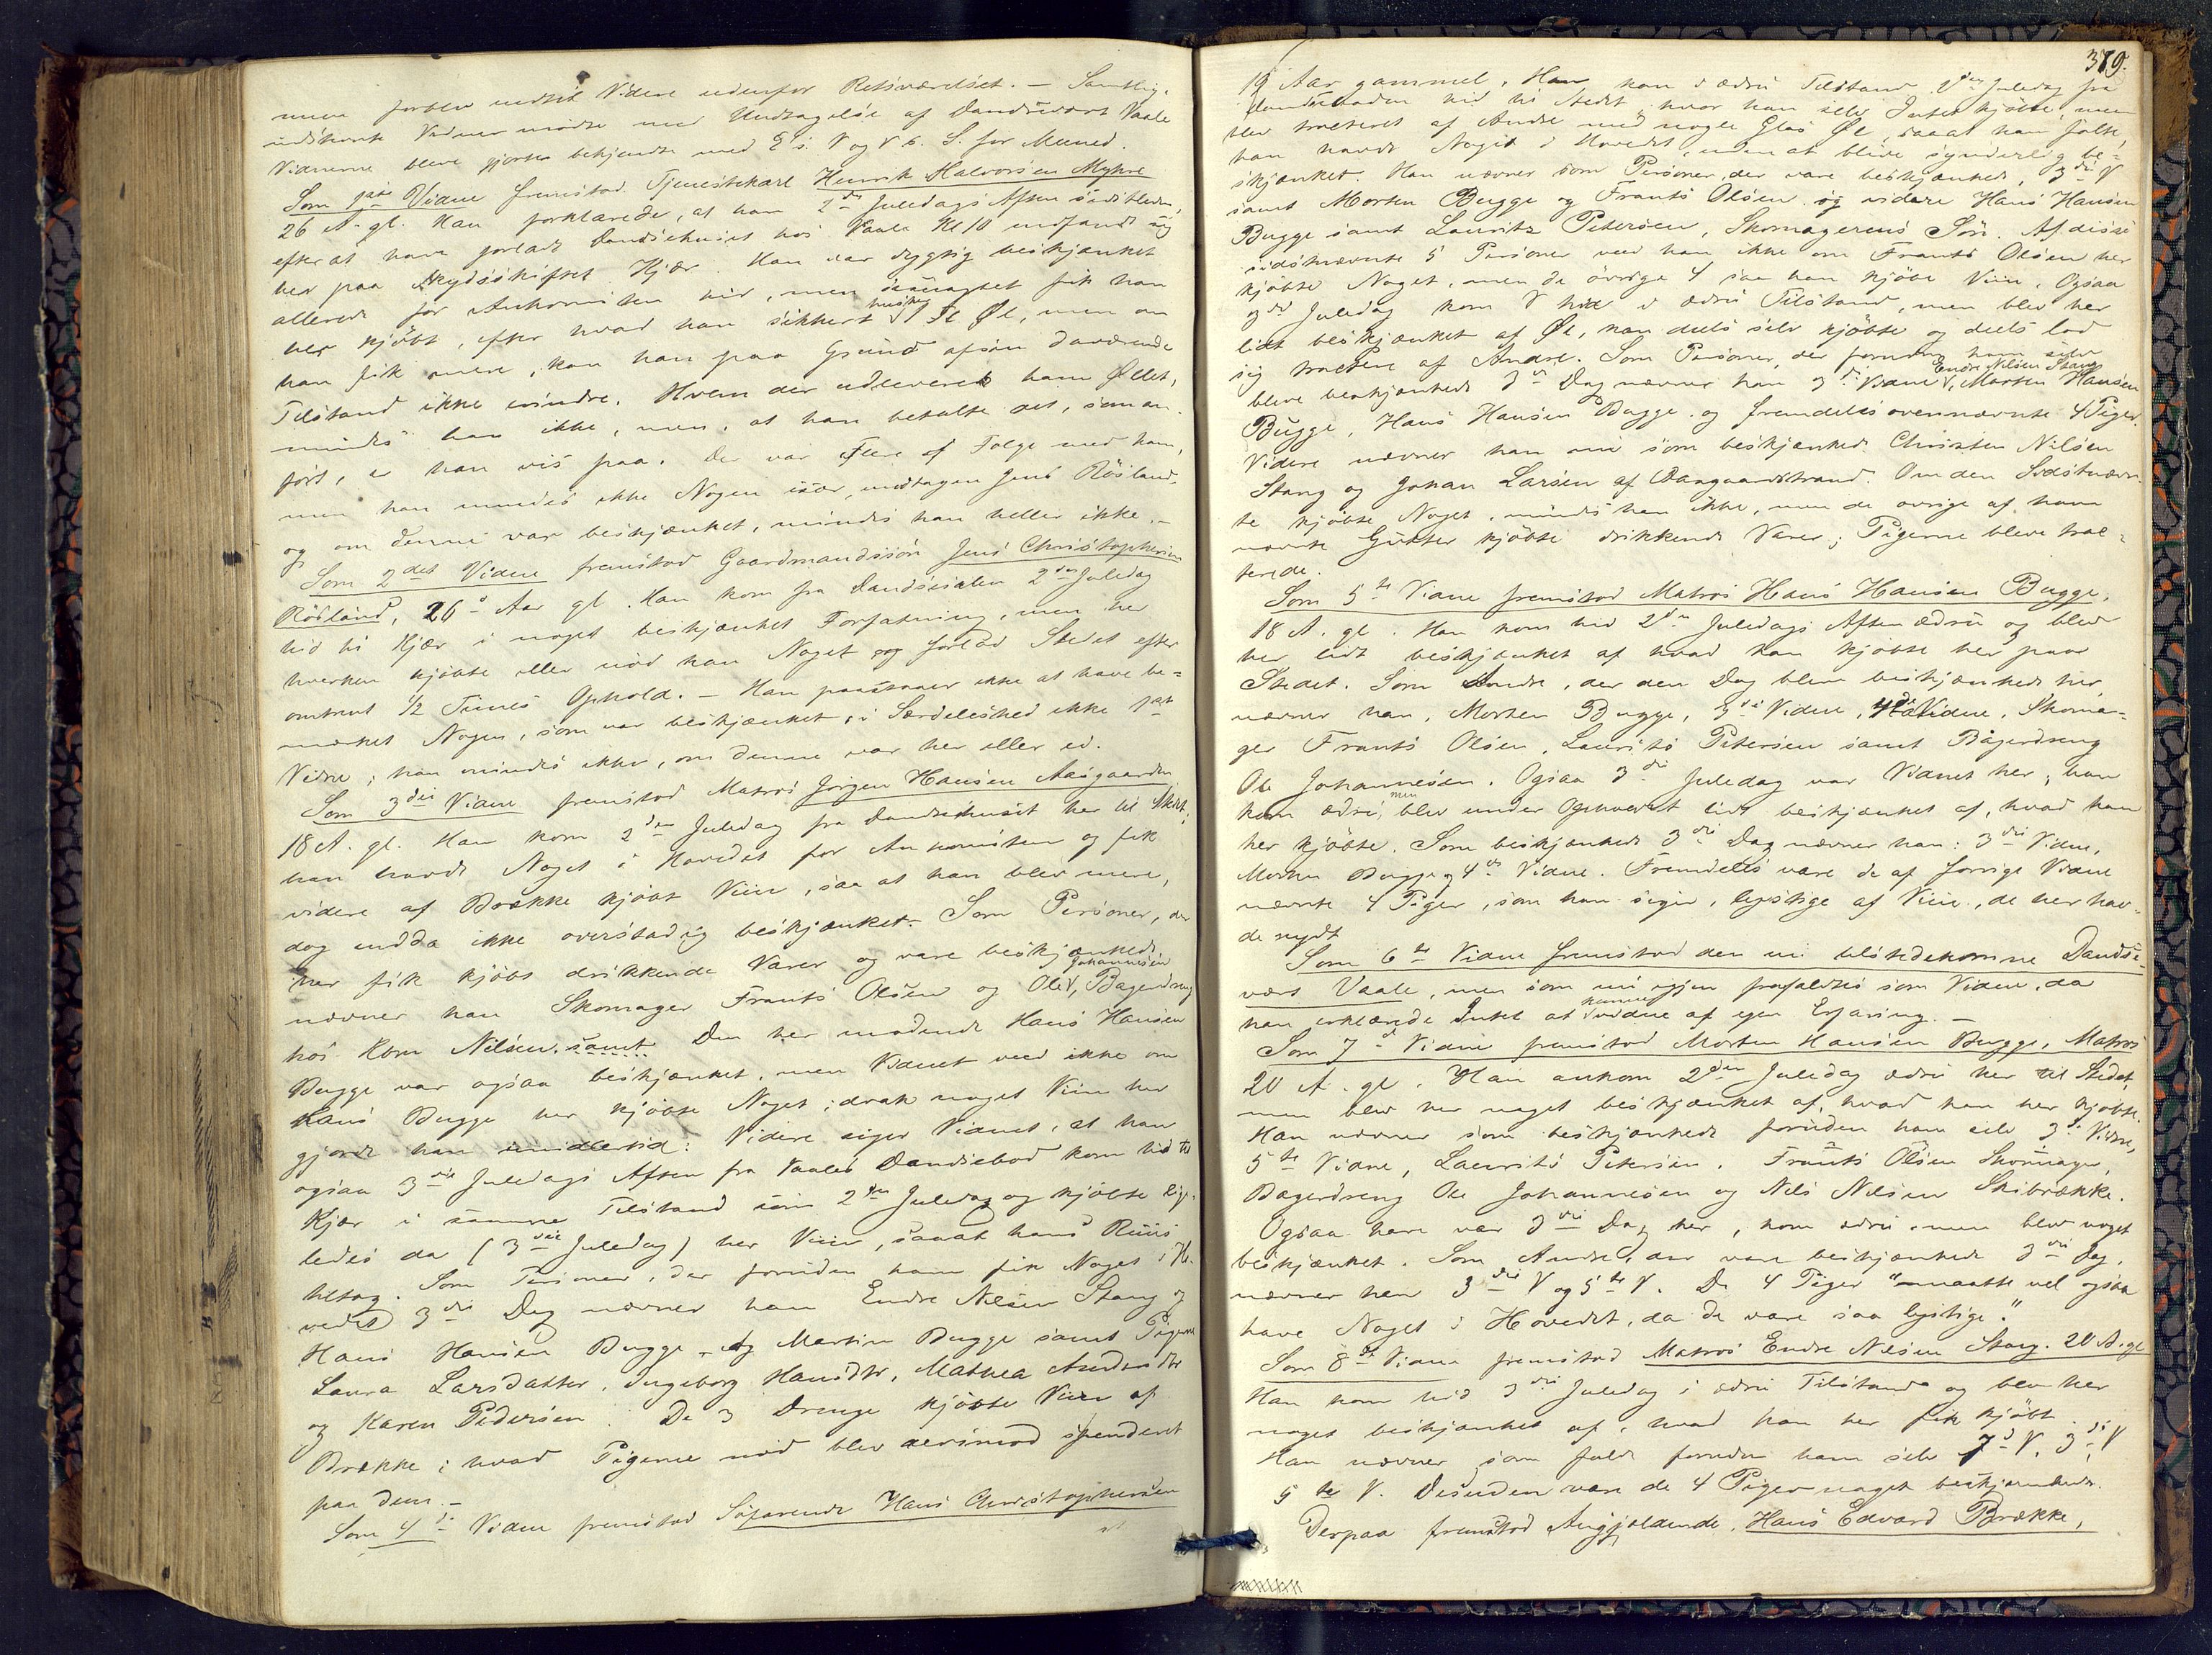 forblev indtil Videre udenfor Retsværelset. – Samtlige
indstevnte Vidner mødte med Undtagelse af Dandsevært Vaale
Vidnerne bleve gjorte bekjendte med E's. V og V 6. S. for Meened.
Som 1ste Vidne fremstod Tjenestekarl Henrik Halvorsen Myhre
26 A. gl. Han forklarede, at han 2den Juledags Aften sidstleden,
efterat have forladt Dandsehuset hos Vaale Kl 10 indfandt sig
her paa Skydsskiftet Kjær. Han var dygtig beskjænket
allerede før Ankomsten hid, men desuagtet fik han
her kjøbt, efter hvad han sikkert husker 1 Fl Øl, men om
han fik mere, kan han paa Grund af sin daværende
Tilstand ikke erindre. Hvem der udleverede ham Øllet,
mindes han ikke, men, at han betalte det, som an-
ført, er han vis paa. Der var Flere af Følge med ham,
men han mindes ikke Nogen især, undtagen Jens Rösland
og om denne var beskjænket, mindes han heller ikke. –
Som 2det Vidne fremstod Gaardmandssøn Jens Christophersen
Rösland, 26 Aar gl. Han kom fra Dandsesalen 2den Juledag
hid til Kjær i noget beskjænket Forfatning, men her
hverken kjøbte eller nød han Noget og forlod Stedet efter
omtrent 1/2 Times Ophold. – Han paastaaer ikke at have be-
mærket Nogen, som var beskjænket, i Særdeleshed ikke 1ste
Vidne; han mindes ikke, om denne var her eller ei.
Som 3die Vidne fremstod Matros Jørgen Hansen Aasgaarden
18 A. gl. Han kom 2den Juledag fra Dandsehuset her til Skiftet;
han havde Noget i Hovedet før Ankomsten og fik
videre af Brække kjøbt Viin, saa at han blev mere,
dog endda ikke overstadig beskjænket. Som Personer, der
her fik kjøbt drikkende Varer og vare beskjænkede
nævner han Skomager Frants Olsen og Ole Johannesen, Bagerdreng
hos Kbm Nilsen. samt Den her mødende Hans Hansen
Bugge var ogsaa beskjænket, men Vidnet veed ikke om
Hans Bugge her kjøbte Noget; drak noget Viin her
gjorde han imidlertid. Videre siger Vidnet, at han
ogsaa 3die Juledags Aften fra Vaales Dandsebod kom hid til
Kjær i samme Tilstand som 2den Juledag og kjøbte lige-
ledes da (3die Juledag) her Viin, saaat hans Ruus
tiltog. Som Personer, der foruden ham fik Noget i Ho-
vedet 3die Dag nævner han Endre Nilsen Stang og
Hans Hansen Bugge, og Martin Bugge samt Pigerne
Laura Larsdatter, Ingeborg Hansdtr, Mathea Andersdtr
og Karen Pedersen. De 3 Drenge kjøbte Viin af
Brække; hvad Pigerne nød blev derimod spenderet
paa dem. –
Som 4de Vidne fremstod Søfarende Hans Christophersen
379.
19 Aar gammel. Han kom i ædru Tilstand 2den Juledag fra
Dandseboden hid til Stedet, hvor han selv Intet kjøbte, men
blev tracteret af Andre med nogle Glas Øl, saaat han følte,
han havde Noget i Hovedet, uden at blive synderlig be-
skjænket. Han nævner som Personer, der vare beskjænkede, 3die V
samt Morten Bugge og Frants Olsen og videre Hans Hansen
Bugge samt Lauritz Petersen, Skomagerens Søn. Af disse
sidstnævnte 5 Personer veed han ikke om Frants Olsen her
kjøbte Noget, men de øvrige 4 saa han kjøbe Viin. Ogsaa
3die Juledag kom V hid i ædru Tilstand, men blev her
lidt beskjænket af Øl, han deels selv kjøbte og deels lod
sig tractere af Andre. Som Personer, der foruden ham selv
bleve beskjænkede 3die Dag nævner han 3die Vidne, Endre Nilsen Stang, Morten Hansen
Bugge, Hans Hansen Bugge og fremdeles ovennævnte 4 Piger.
Videre nævner han nu som beskjænkede Christen Nilsen
Stang og Johan Larsen af Aasgaardstrand. Om den Sidstnævn-
te kjøbte Noget, mindes han ikke, men de øvrige af ham
nævnte Gutter kjøbte drikkende Varer; Pigerne bleve trac-
terede.
Som 5te Vidne fremstod Matros Hans Hansen Bugge,
18 A. gl. Han kom hid 2den Juledags Aften ædru og blev
her lidt beskjænket af hvad han kjøbte her paa
Stedet. Som Andre, der den Dag bleve beskjænkede her,
nævner han, Morten Bugge, 3die Vidne, 4de Vidne, Skoma-
ger Frants Olsen, Laurits Petersen samt Bagerdreng
Ole Johannesen. Ogsaa 3die Juledag var Vidnet her; han
kom ædru, men blev under Opholdet lidt beskjænket af, hvad han
her kjøbte. Som beskjænkede 3die Dag nævner han: 3die Vidne,
Morten Bugge og 4de Vidne. Fremdeles vare de af forrige Vidne
nævnte 4 Piger, som han siger, lystige af Viin, de her hav-
de nydt
Som 6te Vidne fremstod den nu tilstedekomne Dandse-
vært Vaale, men som nu igjen frafaldtes som Vidne, da
han erklærede Intet at kunne vidne af egen Erfaring. –
Som 7de Vidne fremstod Morten Hansen Bugge, Matros
20 A. gl. Han ankom 2den Juledag ædru her til Stedet,
men blev her noget beskjænket af, hvad han her kjøbte.
Han nævner som beskjænkede foruden ham selv 3die Vidne,
5te Vidne, Laurits Petersen, Frants Olsen Skomager,
Bagerdreng Ole Johannesen og Nils Nilsen Skibrække.
Ogsaa han var 3die Dag her, kom ædru, men blev noget
beskjænket. Som Andre, der vare beskjænkede 3die Dag,
nævner han 3die V og 5te V. De 4 Piger "maatte vel ogsaa
have Noget i Hovedet, da de vare saa lystige."
Som 8de Vidne fremstod Matros Endre Nilsen Stang. 20 A. gl
Han kom hid 3die Juledag i ædru Tilstand og blev her
noget beskjænket af, hvad han her fik kjøbt.
Han nævner som fulde foruden ham selv 7de V, 3die V
5te V. Desuden vare de 4 Piger noget beskjænkede.
Derpaa fremstod Angjeldende, Hans Edvard Brække,